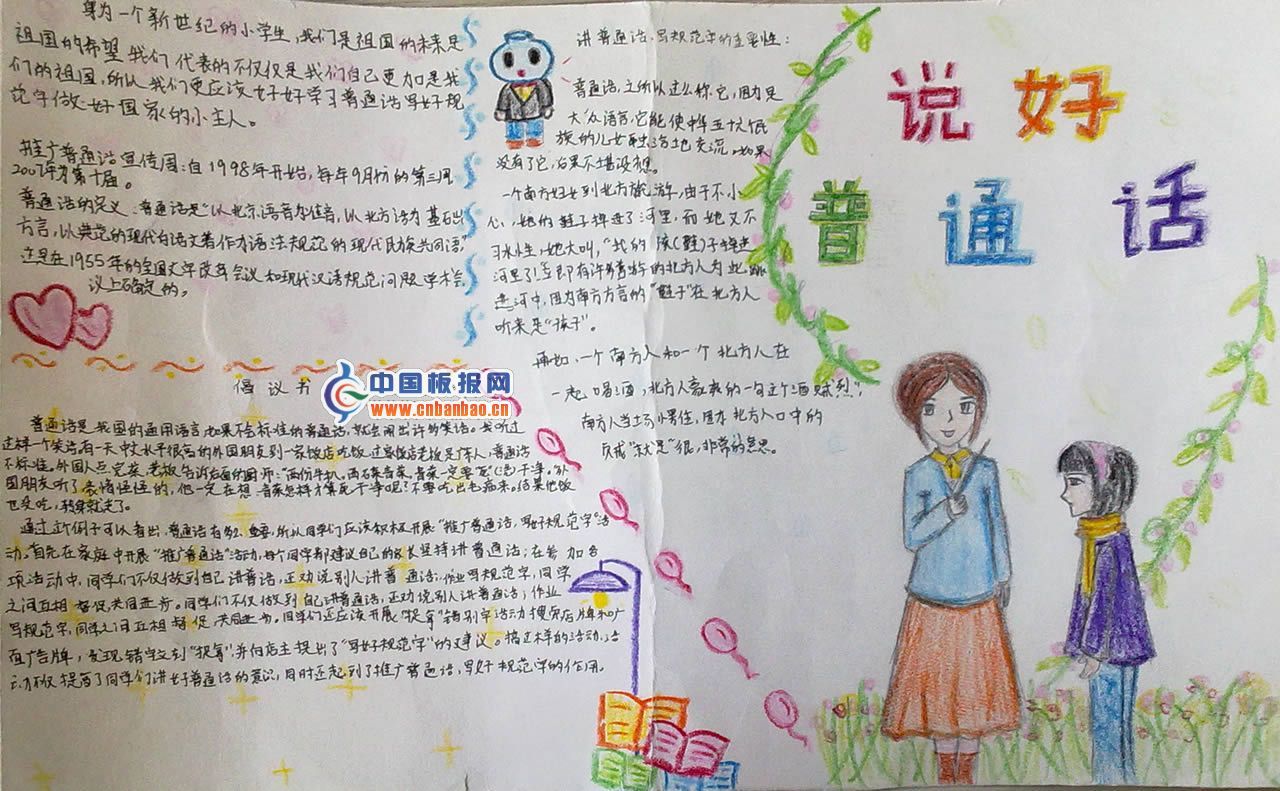 身为一个新世纪的小学生，我们是祖国的未来是
祖国的希望我们代表的不仅仅是我们自己更加是我
们的祖国，所以我们更应该好好学习普通话写好规
范字做好国家的小主人。
推广普通话宣传周：自1998年开始，每年9月份的第三周
2007年为第十届。
普通话的定义：普通话是"以北京语音为准音，以北方话为基础
方言，以典范的现代白话文著作为语法规范的现代民族共同语，"
这是在1955年的全国文字改革会议和现代汉语规范问题学术会
议上确定的。
倡议书
普通话是我国的通用语言，如果不会标准的普通话，就会闹出许的笑话。我听过
这样一个笑话：有一天中文水平很高的外国朋友到一家饭店吃饭，这家饭店老板是广东人，普通话
不标准。外国人点完菜，老板告诉后面的厨师："两份牛扒，两石菜，青菜一定要死(洗)干净。外
国朋友听了表情怪怪的，他一定在想：青菜怎样才算死干净呢？不要吃出毛病来。结果他饭
也没吃，转身就走了。
通过这个例子可以看出，普通话有多么重要，所以同学们应该积极开展"推广普通话，写好规范字"活
动。首先在家庭中开展"推广普通话"活动，每个同学都建议自己的家长坚持讲普通话；在参加各
项活动中，同学们不仅做到自己讲普话，还劝说别人讲普通话；作业写规范字，同学
之间互相督促，共同进步。同学们不仅做到自己讲普通话，还劝说别人讲普通话；作业
写规范字，同学之间互相督促，共同进步。同学们还应该开展"捉拿"错别字活动，搜索店牌和广
告牌，发现错字立刻"捉拿"，并向店主提出了"写好规范字"的建议。搞过样的活动，活
动不仅提高了同学们讲好普通话的意识，同时还起到了推广普通话，写好规范字的作用。
中国板报网
www.cnbanbao.cn
讲普通话，写规范字的重要性：
普通话，之所以这么称它，因为是
大众语言，它能使中华五十六个民
族的儿女融洽地交流。如果
没有了它，后果不堪设想。
一个南方妇女到北方旅游，由于不小
心，她的鞋子掉进了河里，而她又不
习水性，她大叫，"我的孩(鞋)子掉进
河里了！立即有许多的北方人为此跳
进河中，因为南方方言的"鞋子"在北方人
听来是"孩子"。
再如，一个南方人和一个北方人在
一起喝酒，北方人豪爽的一句这个酒贼烈！"
南方人当场愣住，因为北方人口中的
贼"就是"很，非常的意思。
说好
普通话